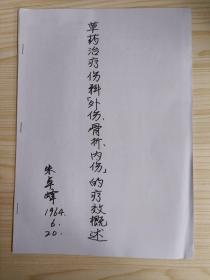 草药治疗伤科「外伤、骨折、内伤」的疗效概述
朱卓峰
1964.
6.
20.